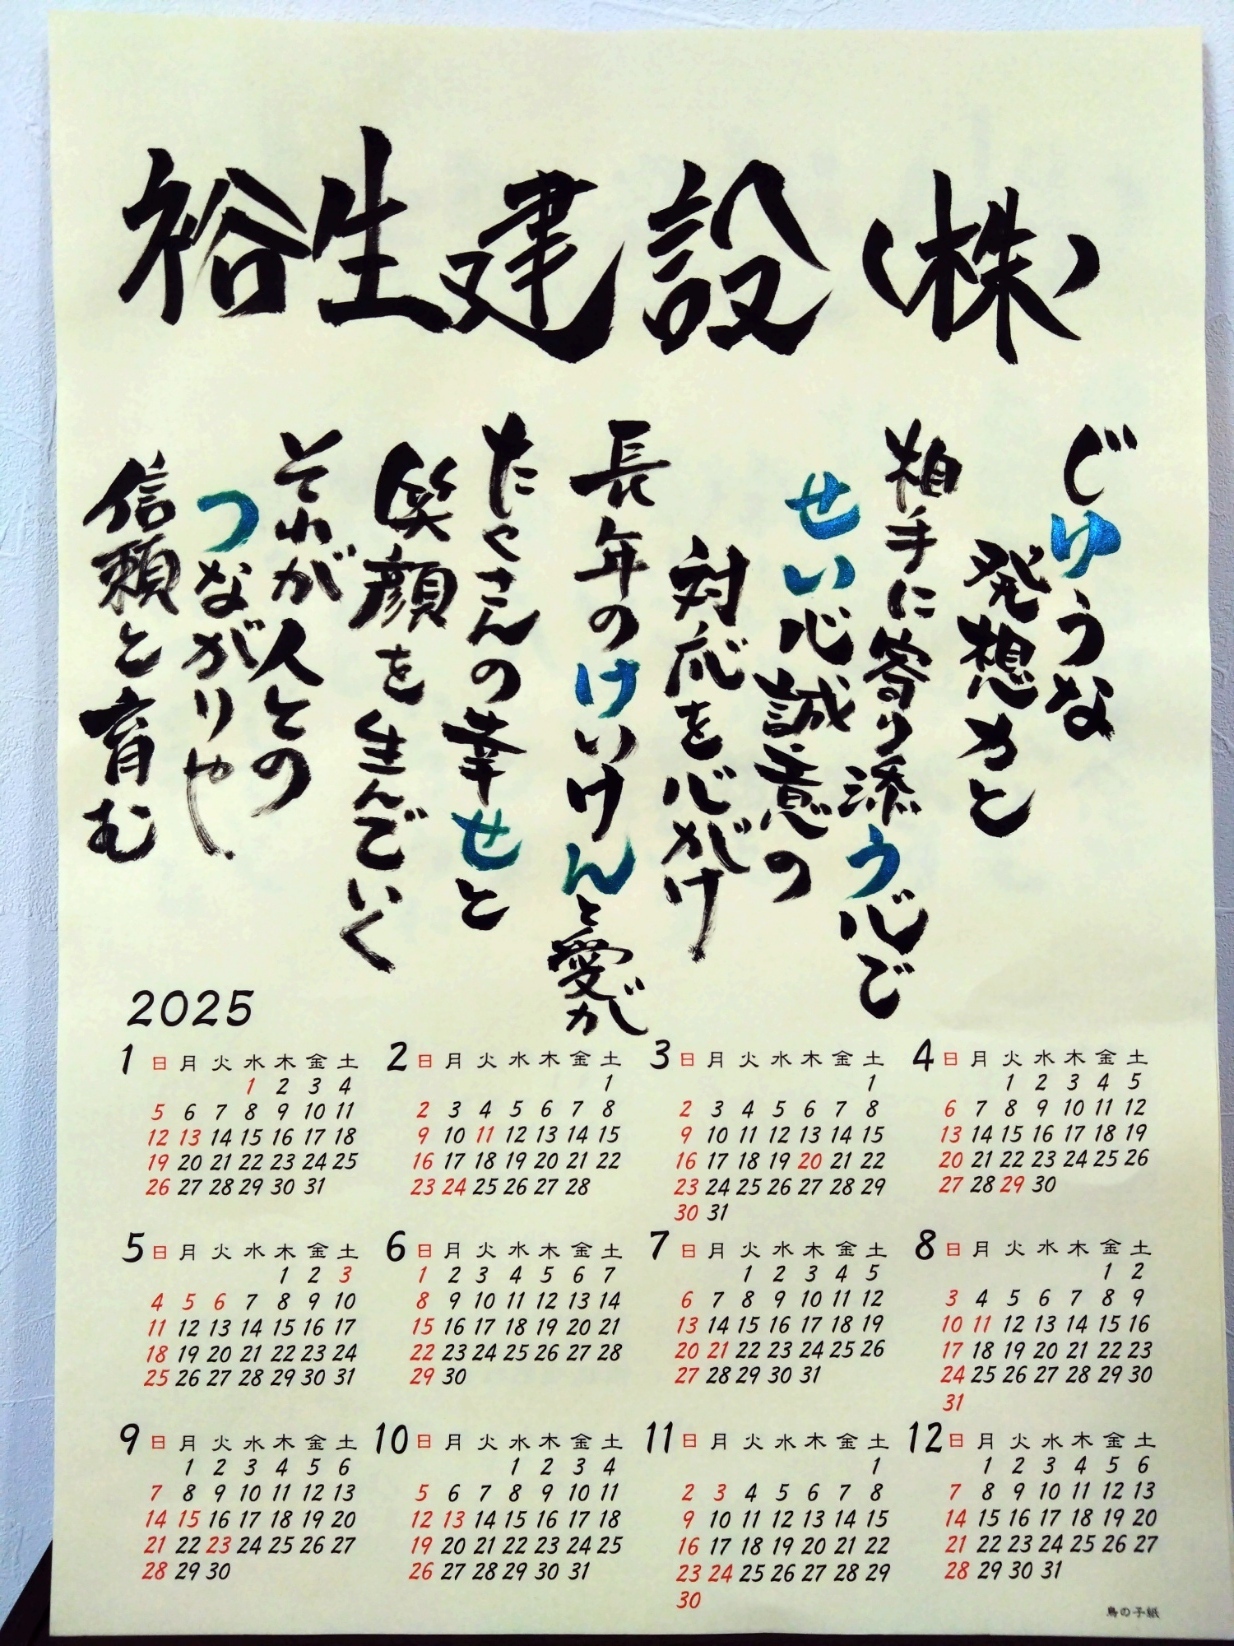 裕生建設(株)
じゆうな
発想力と
相手に寄り添う心で
せい心誠意の
対応を心がけ
長年のけいけんと愛が
たくさんの幸せと
笑顔を生んでいく
それが人との
つながりや
信頼と育む
2025
1 日 月 火 水 木 金 土
1 2 3 4
5 6 7 8 9 10 11
12 13 14 15 16 17 18
19 20 21 22 23 24 25
26 27 28 29 30 31
2 日 月 火 水 木 金 土
1
2 3 4 5 6 7 8
9 10 11 12 13 14 15
16 17 18 19 20 21 22
23 24 25 26 27 28
3 日 月 火 水 木 金 土
1
2 3 4 5 6 7 8
9 10 11 12 13 14 15
16 17 18 19 20 21 22
23 24 25 26 27 28 29
30 31
4 日 月 火 水 木 金 土
1 2 3 4 5
6 7 8 9 10 11 12
13 14 15 16 17 18 19
20 21 22 23 24 25 26
27 28 29 30
5 日 月 火 水 木 金 土
1 2 3
4 5 6 7 8 9 10
11 12 13 14 15 16 17
18 19 20 21 22 23 24
25 26 27 28 29 30 31
6 日 月 火 水 木 金 土
1 2 3 4 5 6 7
8 9 10 11 12 13 14
15 16 17 18 19 20 21
22 23 24 25 26 27 28
29 30
7 日 月 火 水 木 金 土
1 2 3 4 5
6 7 8 9 10 11 12
13 14 15 16 17 18 19
20 21 22 23 24 25 26
27 28 29 30 31
8 日 月 火 水 木 金 土
1 2
3 4 5 6 7 8 9
10 11 12 13 14 15 16
17 18 19 20 21 22 23
24 25 26 27 28 29 30
31
9 日 月 火 水 木 金 土
1 2 3 4 5 6
7 8 9 10 11 12 13
14 15 16 17 18 19 20
21 22 23 24 25 26 27
28 29 30
10 日 月 火 水 木 金 土
1 2 3 4
5 6 7 8 9 10 11
12 13 14 15 16 17 18
19 20 21 22 23 24 25
26 27 28 29 30 31
11 日 月 火 水 木 金 土
1
2 3 4 5 6 7 8
9 10 11 12 13 14 15
16 17 18 19 20 21 22
23 24 25 26 27 28 29
30
12 日 月 火 水 木 金 土
1 2 3 4 5 6
7 8 9 10 11 12 13
14 15 16 17 18 19 20
21 22 23 24 25 26 27
28 29 30 31
鳥の子紙